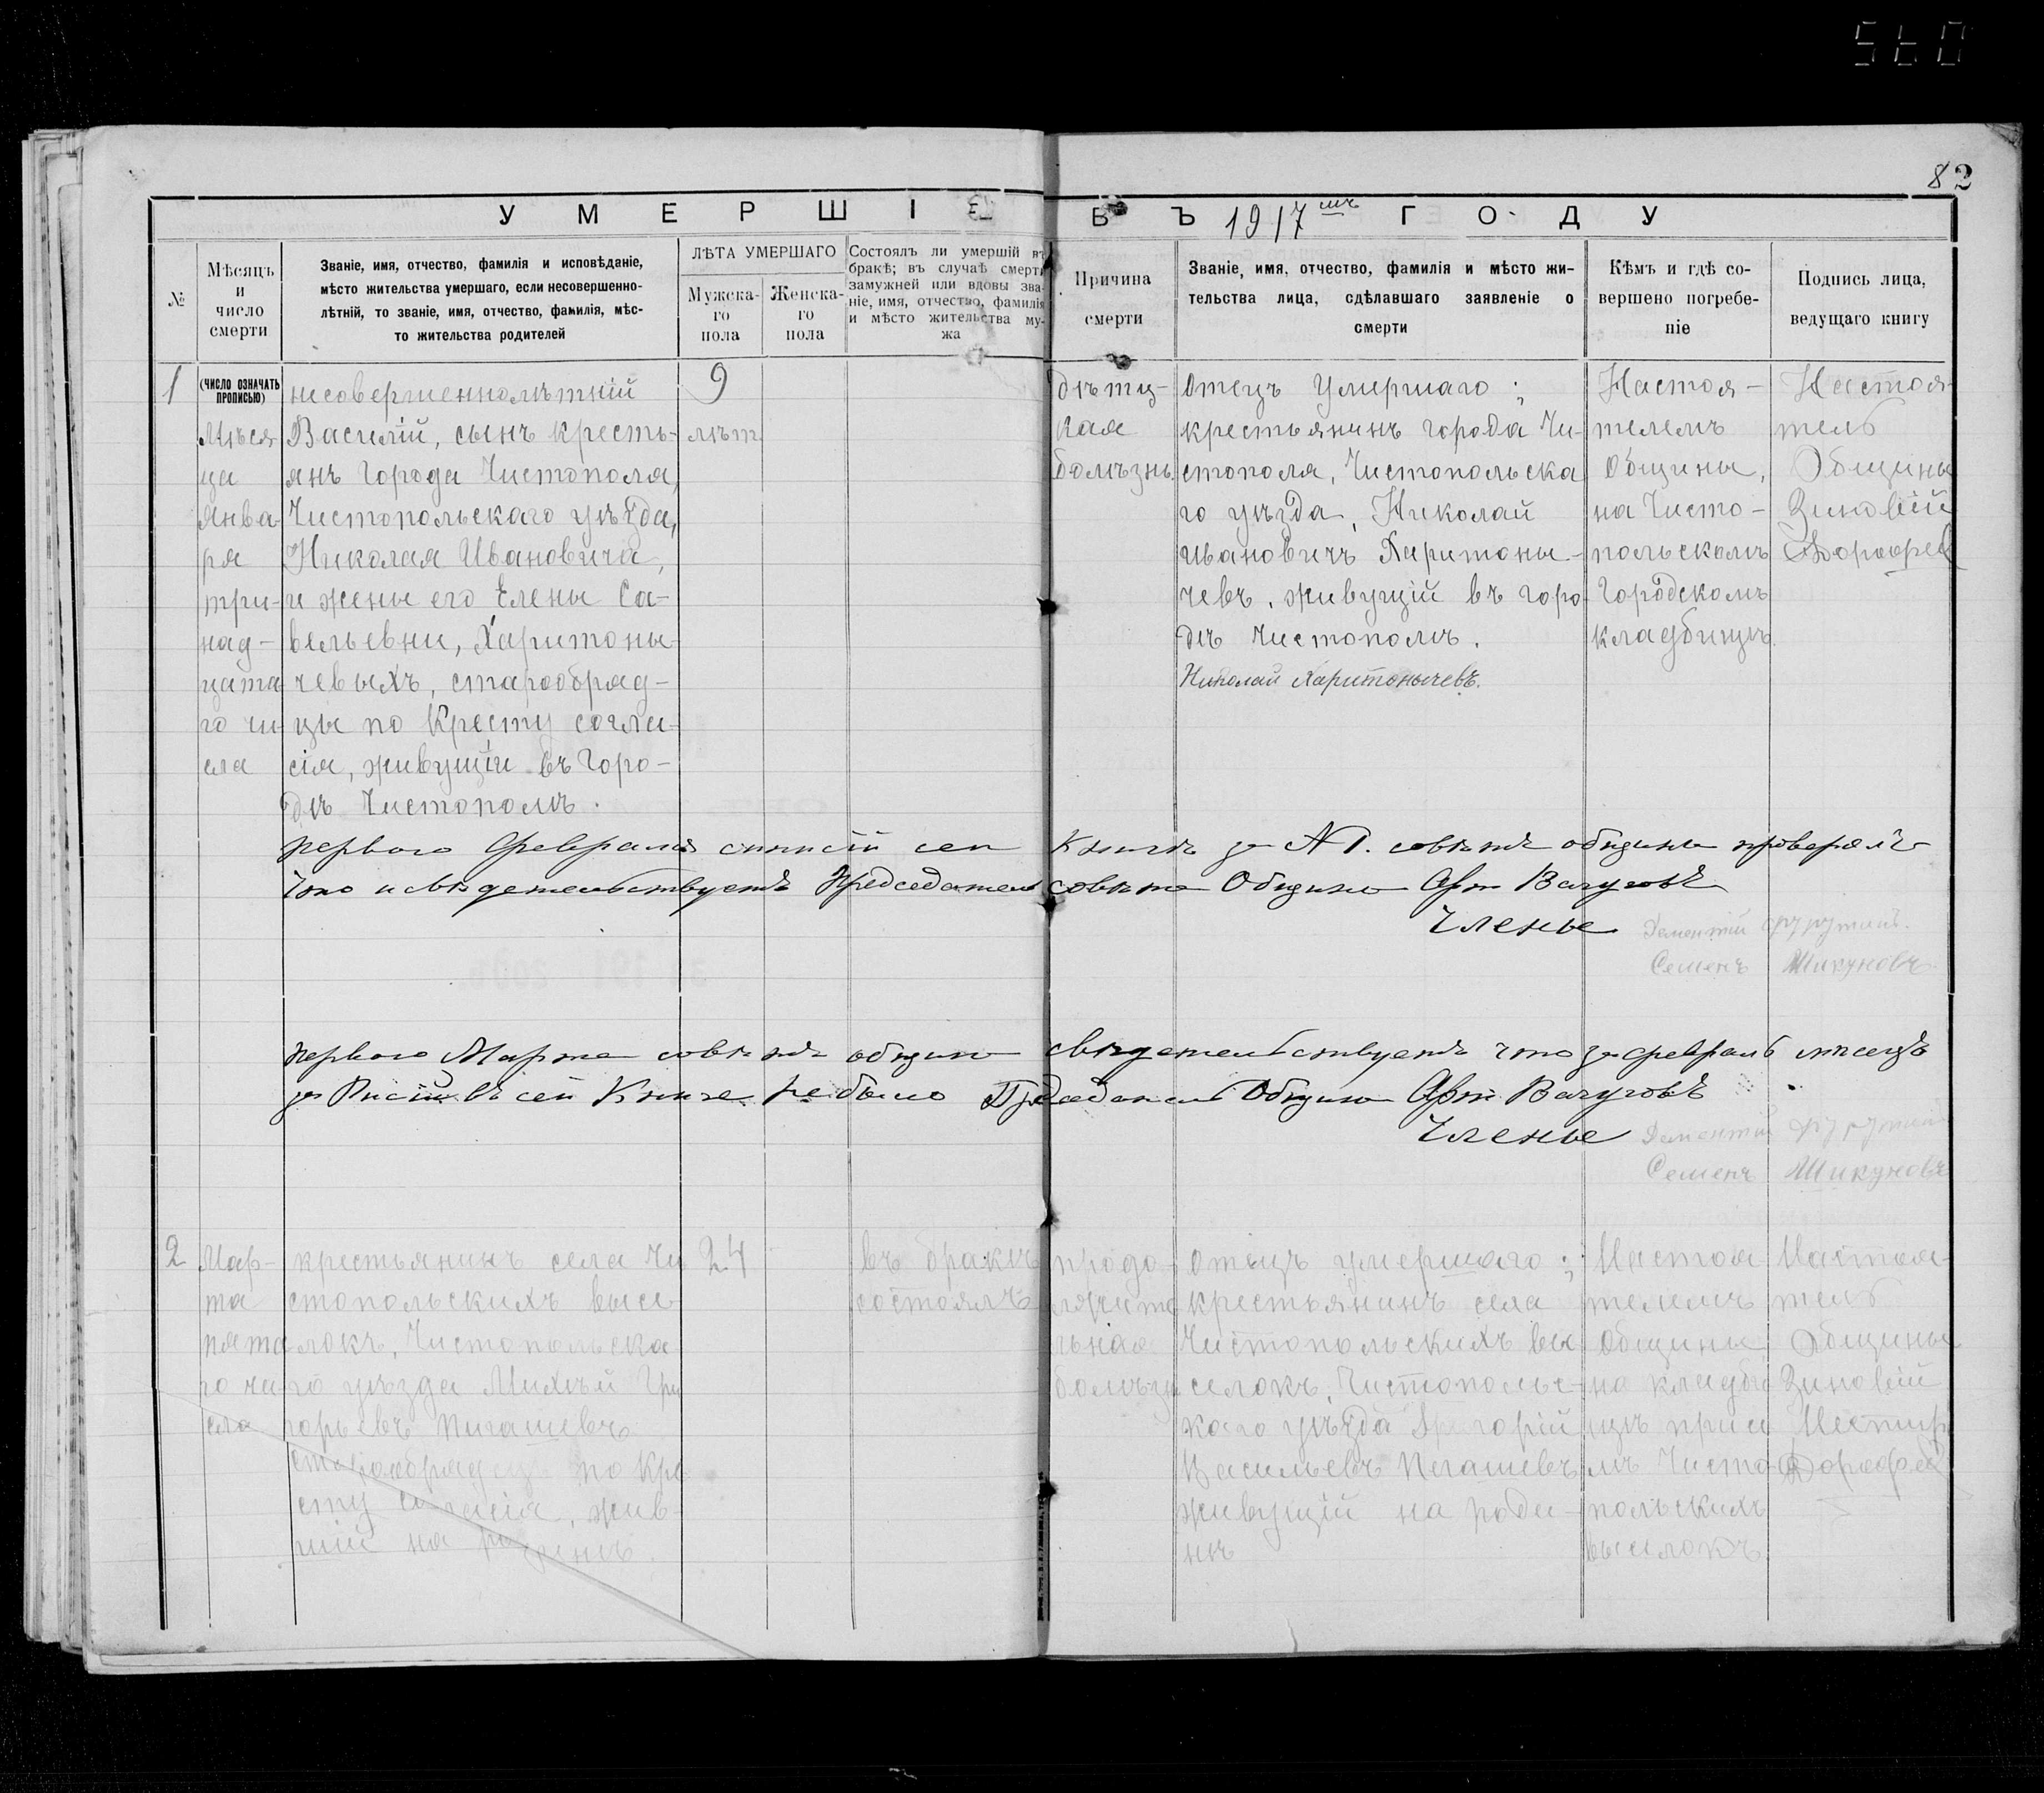 560
82
УМЕРШІЕ ВЪ 1917 мъ ГОДУ
№
Мѣсяцъ
и
число
смерти
Званіе, имя, отчество, фамилія и исповѣданіе,
мѣсто жительства умершаго, если несовершенно-
лѣтній, то званіе, имя, отчество, фамилія, мѣс-
то жительства родителей
ЛѢТА УМЕРШАГО
Мужска-
го
пола
Женска-
го
пола
Состоялъ ли умершій въ
бракѣ; въ случаѣ смерти
замужней или вдовы зва-
ніе, имя, отчество, фамилія
и мѣсто жительства му-
жа
Причина
смерти
Званіе, имя, отчество, фамилія и мѣсто жи-
тельства лица, сдѣлавшаго заявленіе о
смерти
Кѣмъ и гдѣ со-
вершено погребе-
ніе
Подпись лица,
ведущаго книгу
1
(ЧИСЛО ОЗНАЧАТЬ
ПРОПИСЬЮ)
Мѣся
ца
Янва-
ря
три-
над-
цата
го чи
сла
несовершеннолѣтній
Василій, сынъ кресть-
янъ города Чистополя,
Чистопольскаго уѣзда,
Николая Ивановича,
и жены его Елены Са-
вельевны, Харитоны-
чевыхъ, старообряд-
цы по Кресту согла-
сія, живущій въ горо-
дѣ Чистополѣ.
9
лѣт
дѣтц-
кая
болѣзнь
Отецъ умершаго;
крестьянинъ города Чи-
стополя, Чистопольска
го уѣзда, Николай
Ивановичъ Харитоны-
чевъ, живущій въ горо
дѣ Чистополѣ.
Николай Харитонычевъ.
Настоя-
телемъ
Общины,
на Чисто-
польскомъ
Городскомъ
кладбищѣ
Настоя-
тель
Общины
Зиновій
Дорофеев
первого Февраля сей Книги за совѣтъ общины проверялъ
что и свѣдетельствуетъ Председатель совѣта Общины Арт Вачуговъ
Члены Дементій
Семенъ Шикуновъ
первого Марта совѣтъ общины свѣдетельствуетъ что за февраль мѣсецъ
въ сей Книге не было Председатель Общины Арт Вачуговъ
Члены Дементій
Семенъ Шикуновъ
2
Мар-
та
пята
го чи
сла
крестьянинъ села Чи
стопольскихъ высе
локъ, Чистопольска
го уѣзда Михѣй Гри
горьевъ Пигашевъ
старообрядецъ по Кре
сту согласія, жив-
шій на родинѣ.
24
въ бракѣ
состоялъ
продо-
лжите
льная
болѣзн
Отецъ умершаго;
крестьянинъ села
Чистопольскихъ вы
селокъ, Чистопольс-
каго уѣзда Григорій
Васильевъ Пигашевъ
живущій на роди-
нѣ
Настоя
телемъ
Общины
на кладби
щѣ при се
лѣ Чисто
польскихъ
выселокъ
Настоя-
тель
Общины
Зиновій
Дорофеев